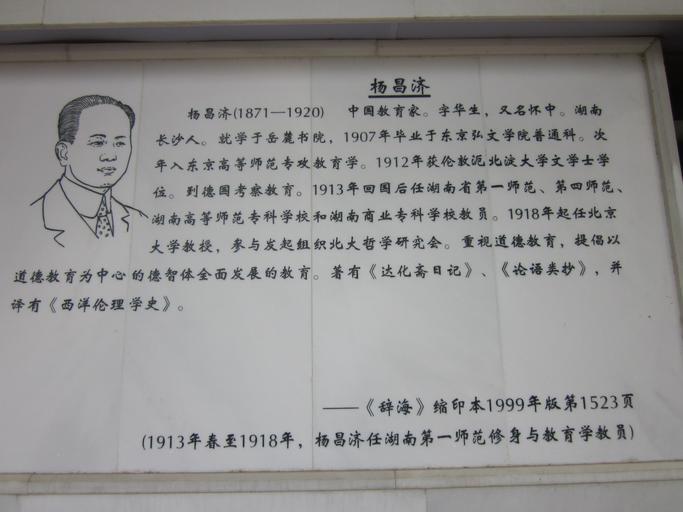 杨昌济
杨昌济(1871—1920) 中国教育家。字华生，又名怀中。湖南
长沙人。就学于岳麓书院，1907年毕业于东京弘文学院普通科。次
年入东京高等师范专攻教育学。1912年获伦敦泥北淀大学文学士学
位。到德国考察教育。1913年回国后任湖南省第一师范、第四师范、
湖南高等师范专科学校和湖南商业专科学校教员。1918年起任北京
大学教授，参与发起组织北大哲学研究会。重视道德教育，提倡以
道德教育为中心的德智体全面发展的教育。著有《达化斋日记》、《论语类抄》，并
译有《西洋伦理学史》。
——《辞海》缩印本1999年版第1523页
(1913年春至1918年，杨昌济任湖南第一师范修身与教育学教员)